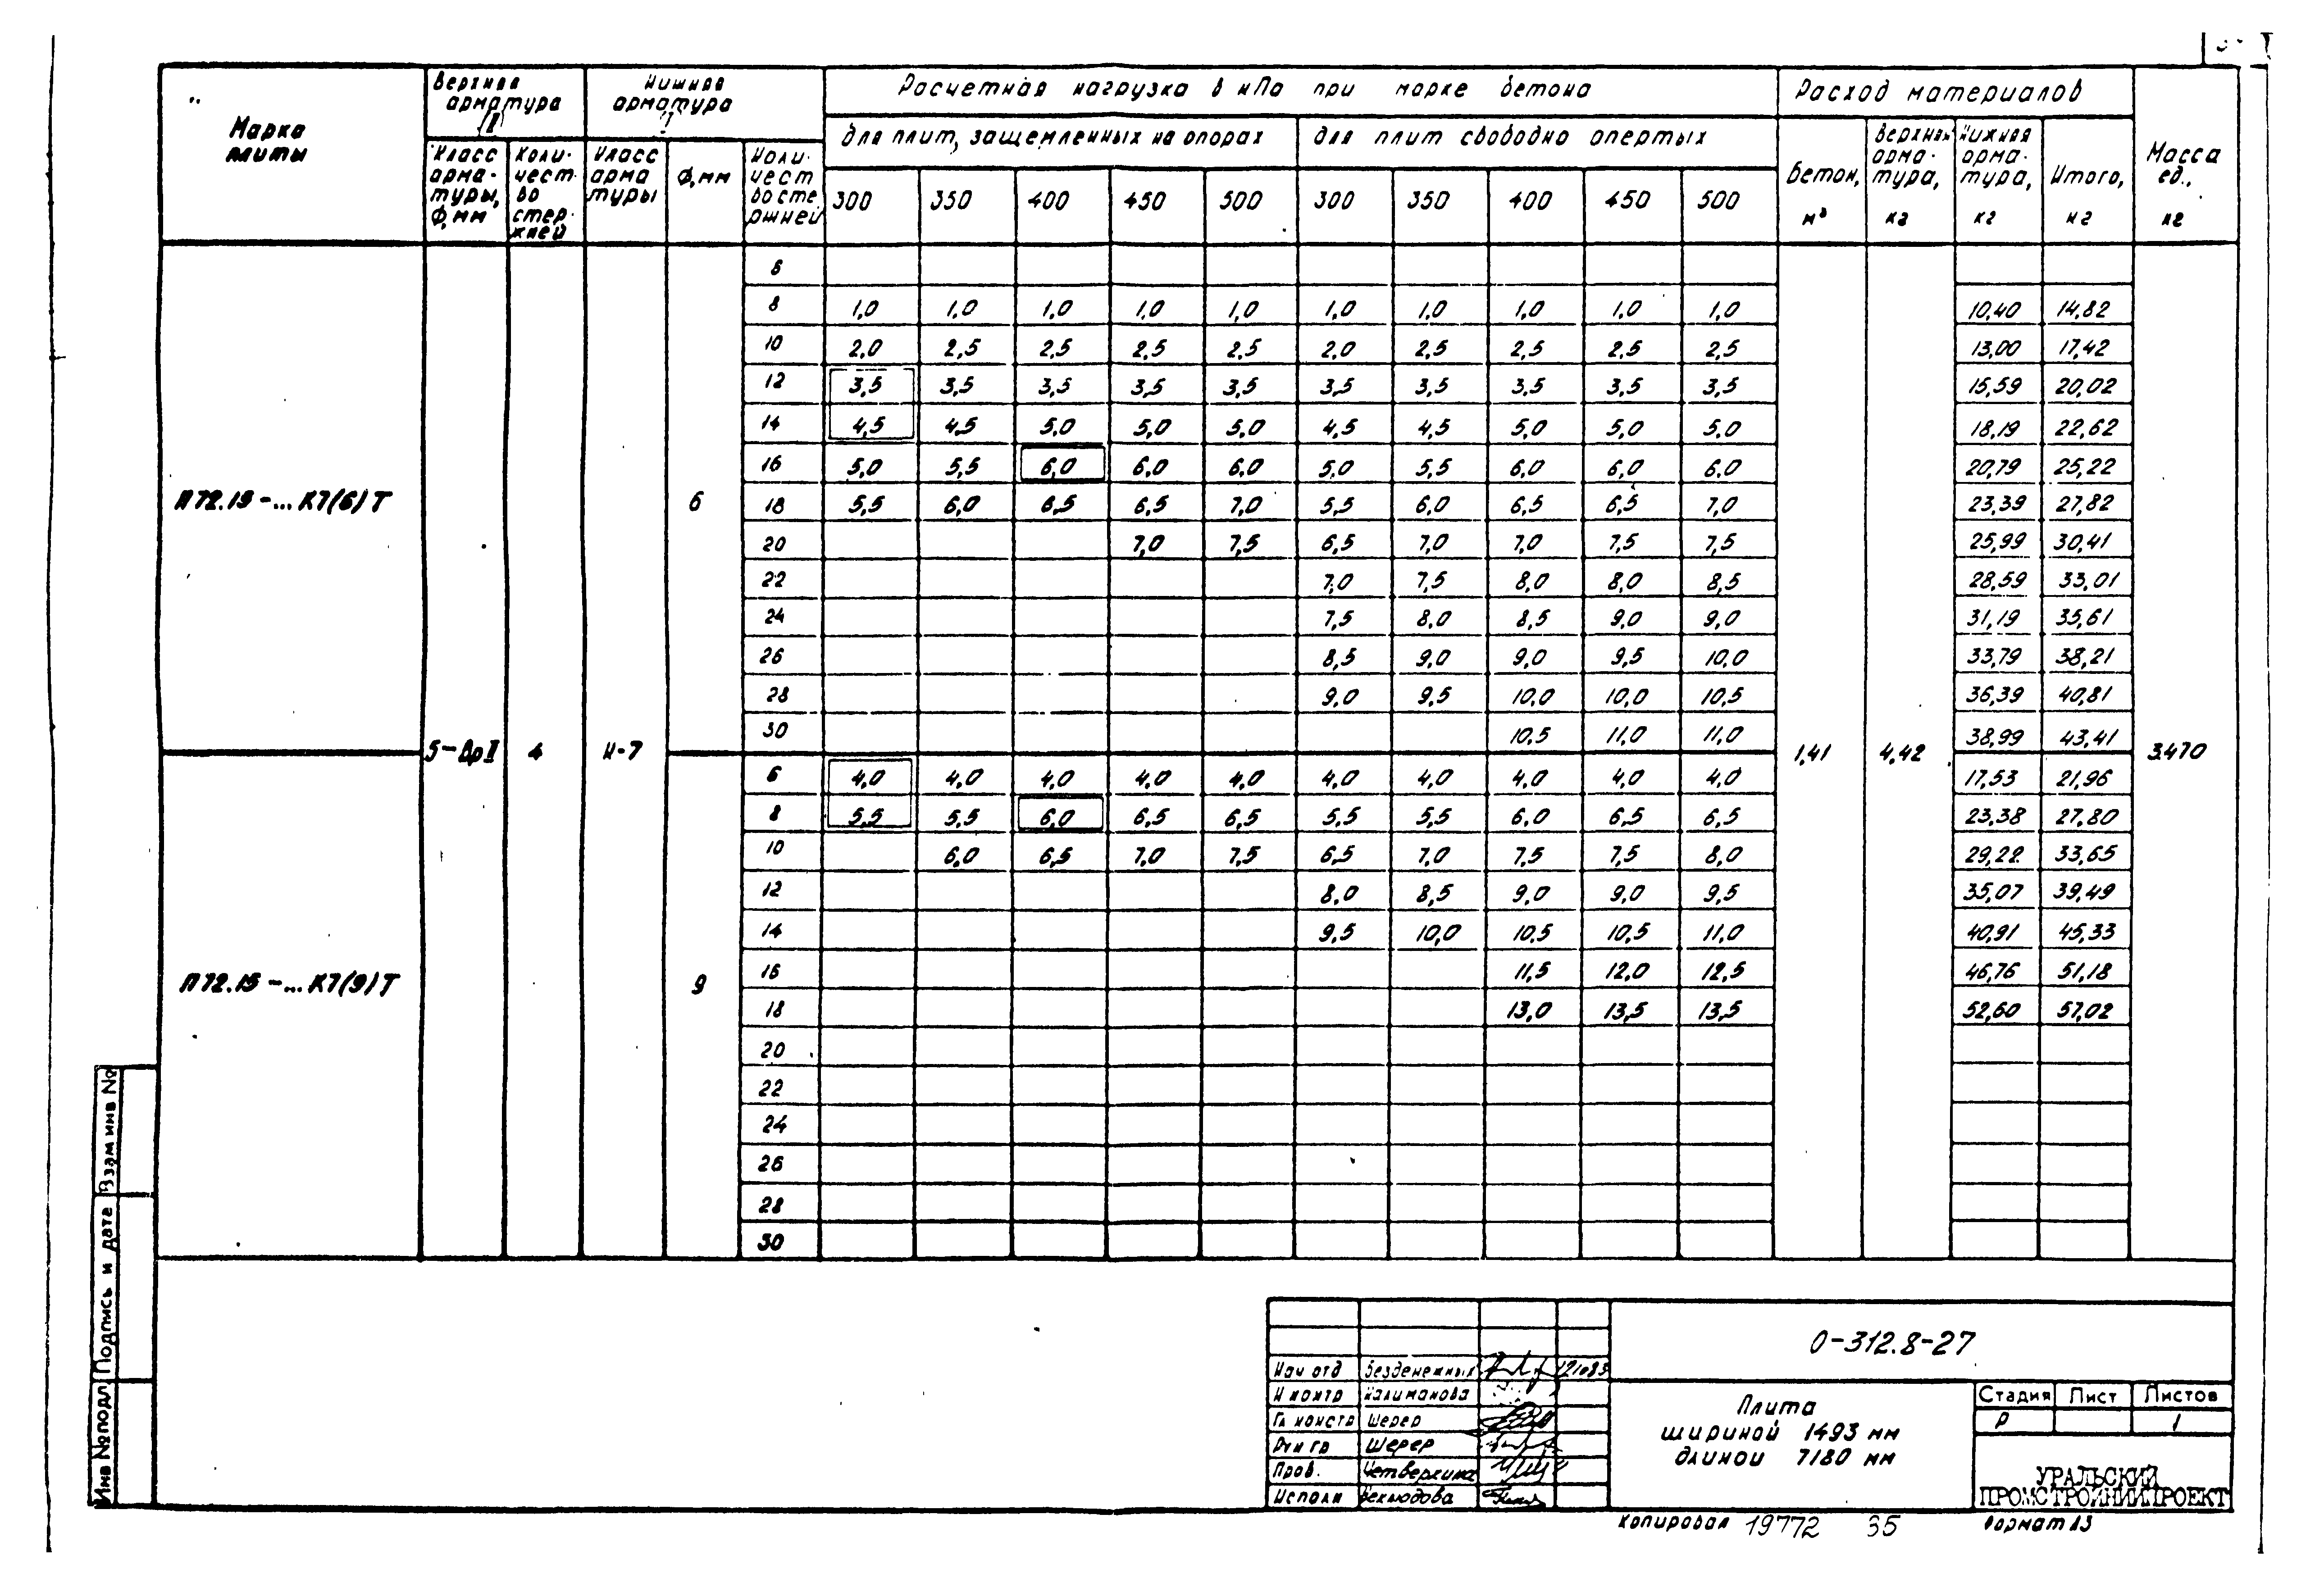 Марка плиты
Верхняя арматура
Нижняя арматура
Расчетная нагрузка в кПа при марке бетона
Расход материалов
Масса ед., кг
Класс арматуры, Ф, мм
Количество стержней
Класс арматуры
Ф, мм
Количество стержней
для плит, защемленных на опорах
для плит свободно опертых
Бетон, м³
Верхняя арматура, кг
Нижняя арматура, кг
Итого, кг
300 350 400 450 500 300 350 400 450 500
6
8 1,0 1,0 1,0 1,0 1,0 1,0 1,0 1,0 1,0 1,0 10,40 14,82
10 2,0 2,5 2,5 2,5 2,5 2,0 2,5 2,5 2,5 2,5 13,00 17,42
12 3,5 3,5 3,5 3,5 3,5 3,5 3,5 3,5 3,5 3,5 15,59 20,02
14 4,5 4,5 5,0 5,0 5,0 4,5 4,5 5,0 5,0 5,0 18,19 22,62
16 5,0 5,5 6,0 6,0 6,0 5,0 5,5 6,0 6,0 6,0 20,79 25,22
П72.15-...К7(6)Т 6 18 5,5 6,0 6,5 6,5 7,0 5,5 6,0 6,5 6,5 7,0 23,39 27,82
20 7,0 7,5 6,5 7,0 7,0 7,5 7,5 25,99 30,41
22 7,0 7,5 8,0 8,0 8,5 28,59 33,01
24 7,5 8,0 8,5 9,0 9,0 31,19 35,61
26 8,5 9,0 9,0 9,5 10,0 33,79 38,21
28 9,0 9,5 10,0 10,0 10,5 36,39 40,81
30 10,5 11,0 11,0 38,99 43,41
5-ВрII 4 К-7 1,41 4,42 3470
6 4,0 4,0 4,0 4,0 4,0 4,0 4,0 4,0 4,0 4,0 17,53 21,96
8 5,5 5,5 6,0 6,5 6,5 5,5 5,5 6,0 6,5 6,5 23,38 27,80
10 6,0 6,5 7,0 7,5 6,5 7,0 7,5 7,5 8,0 29,22 33,65
12 8,0 8,5 9,0 9,0 9,5 35,07 39,49
14 9,5 10,0 10,5 10,5 11,0 40,91 45,33
П72.15-...К7(9)Т 9 16 11,5 12,0 12,5 46,76 51,18
18 13,0 13,5 13,5 52,60 57,02
20
22
24
26
28
30
Взам инв №
Подпись и дата
Инв № подл.
0-312.8-27
Нач отд Безденежных
Н контр Калиманова
Гл констр Шерер
Рук гр Шерер
Пров. Четверкина
Исполн Неклюдова
Плита
шириной 1493 мм
длиной 7180 мм
Стадия Лист Листов
Р 1
УРАЛЬСКИЙ
ПРОМСТРОЙНИИПРОЕКТ
Копировал 19772 35 Формат А3